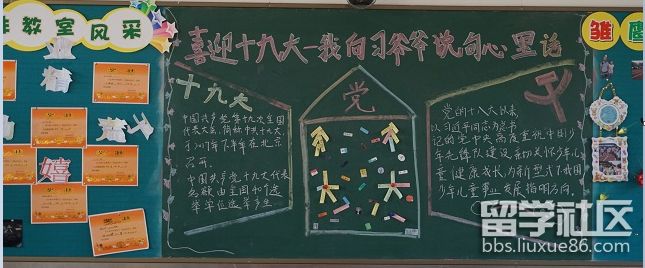 教室风采
喜迎十九大—我向习爷爷说句心里话
雏鹰
十九大
中国共产党第十九次全国
代表大会,简称中共十九大,
于2017年下半年在北京
召开。
中国共产党十九大代表
名额由全国40个选
举单位选举产生
党
党的十八大以来,
以习近平同志为总书
记的党中央高度重视中国少
年先锋队建设亲切关怀少年儿
童健康成长,为新型式下我国
少年儿童事业发展指明方向。
奖状
嘻
留学社区
bbs.liuxue86.com